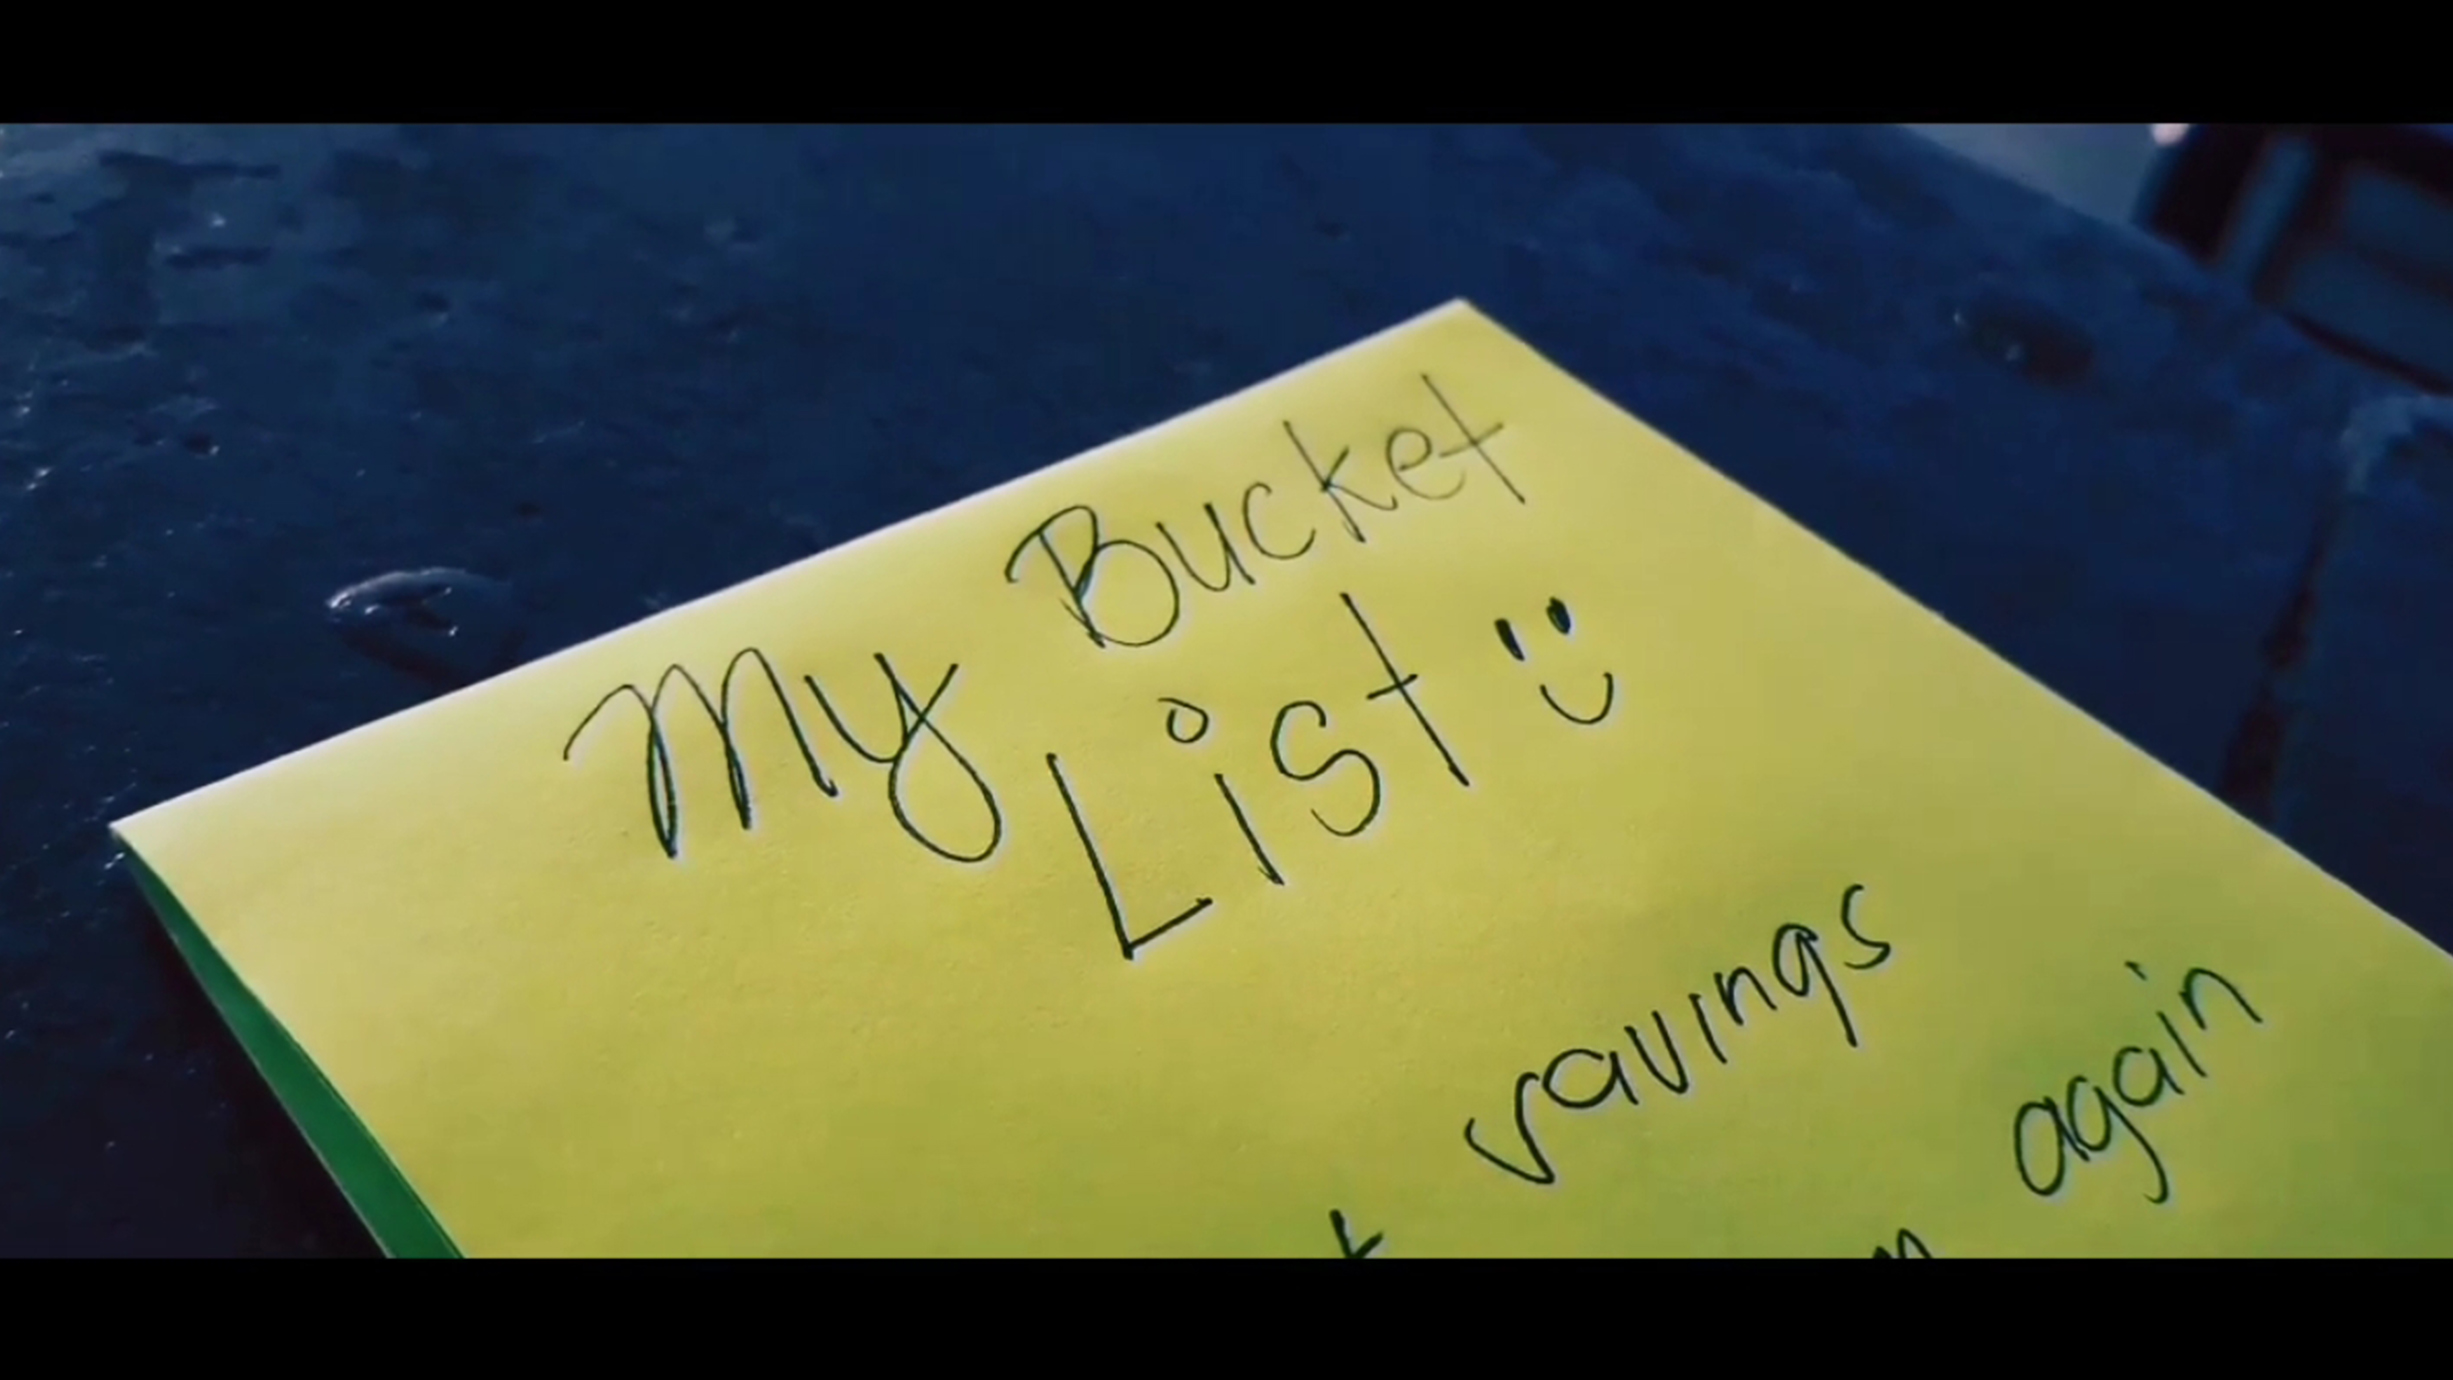 My Bucket
List :)
savings
again